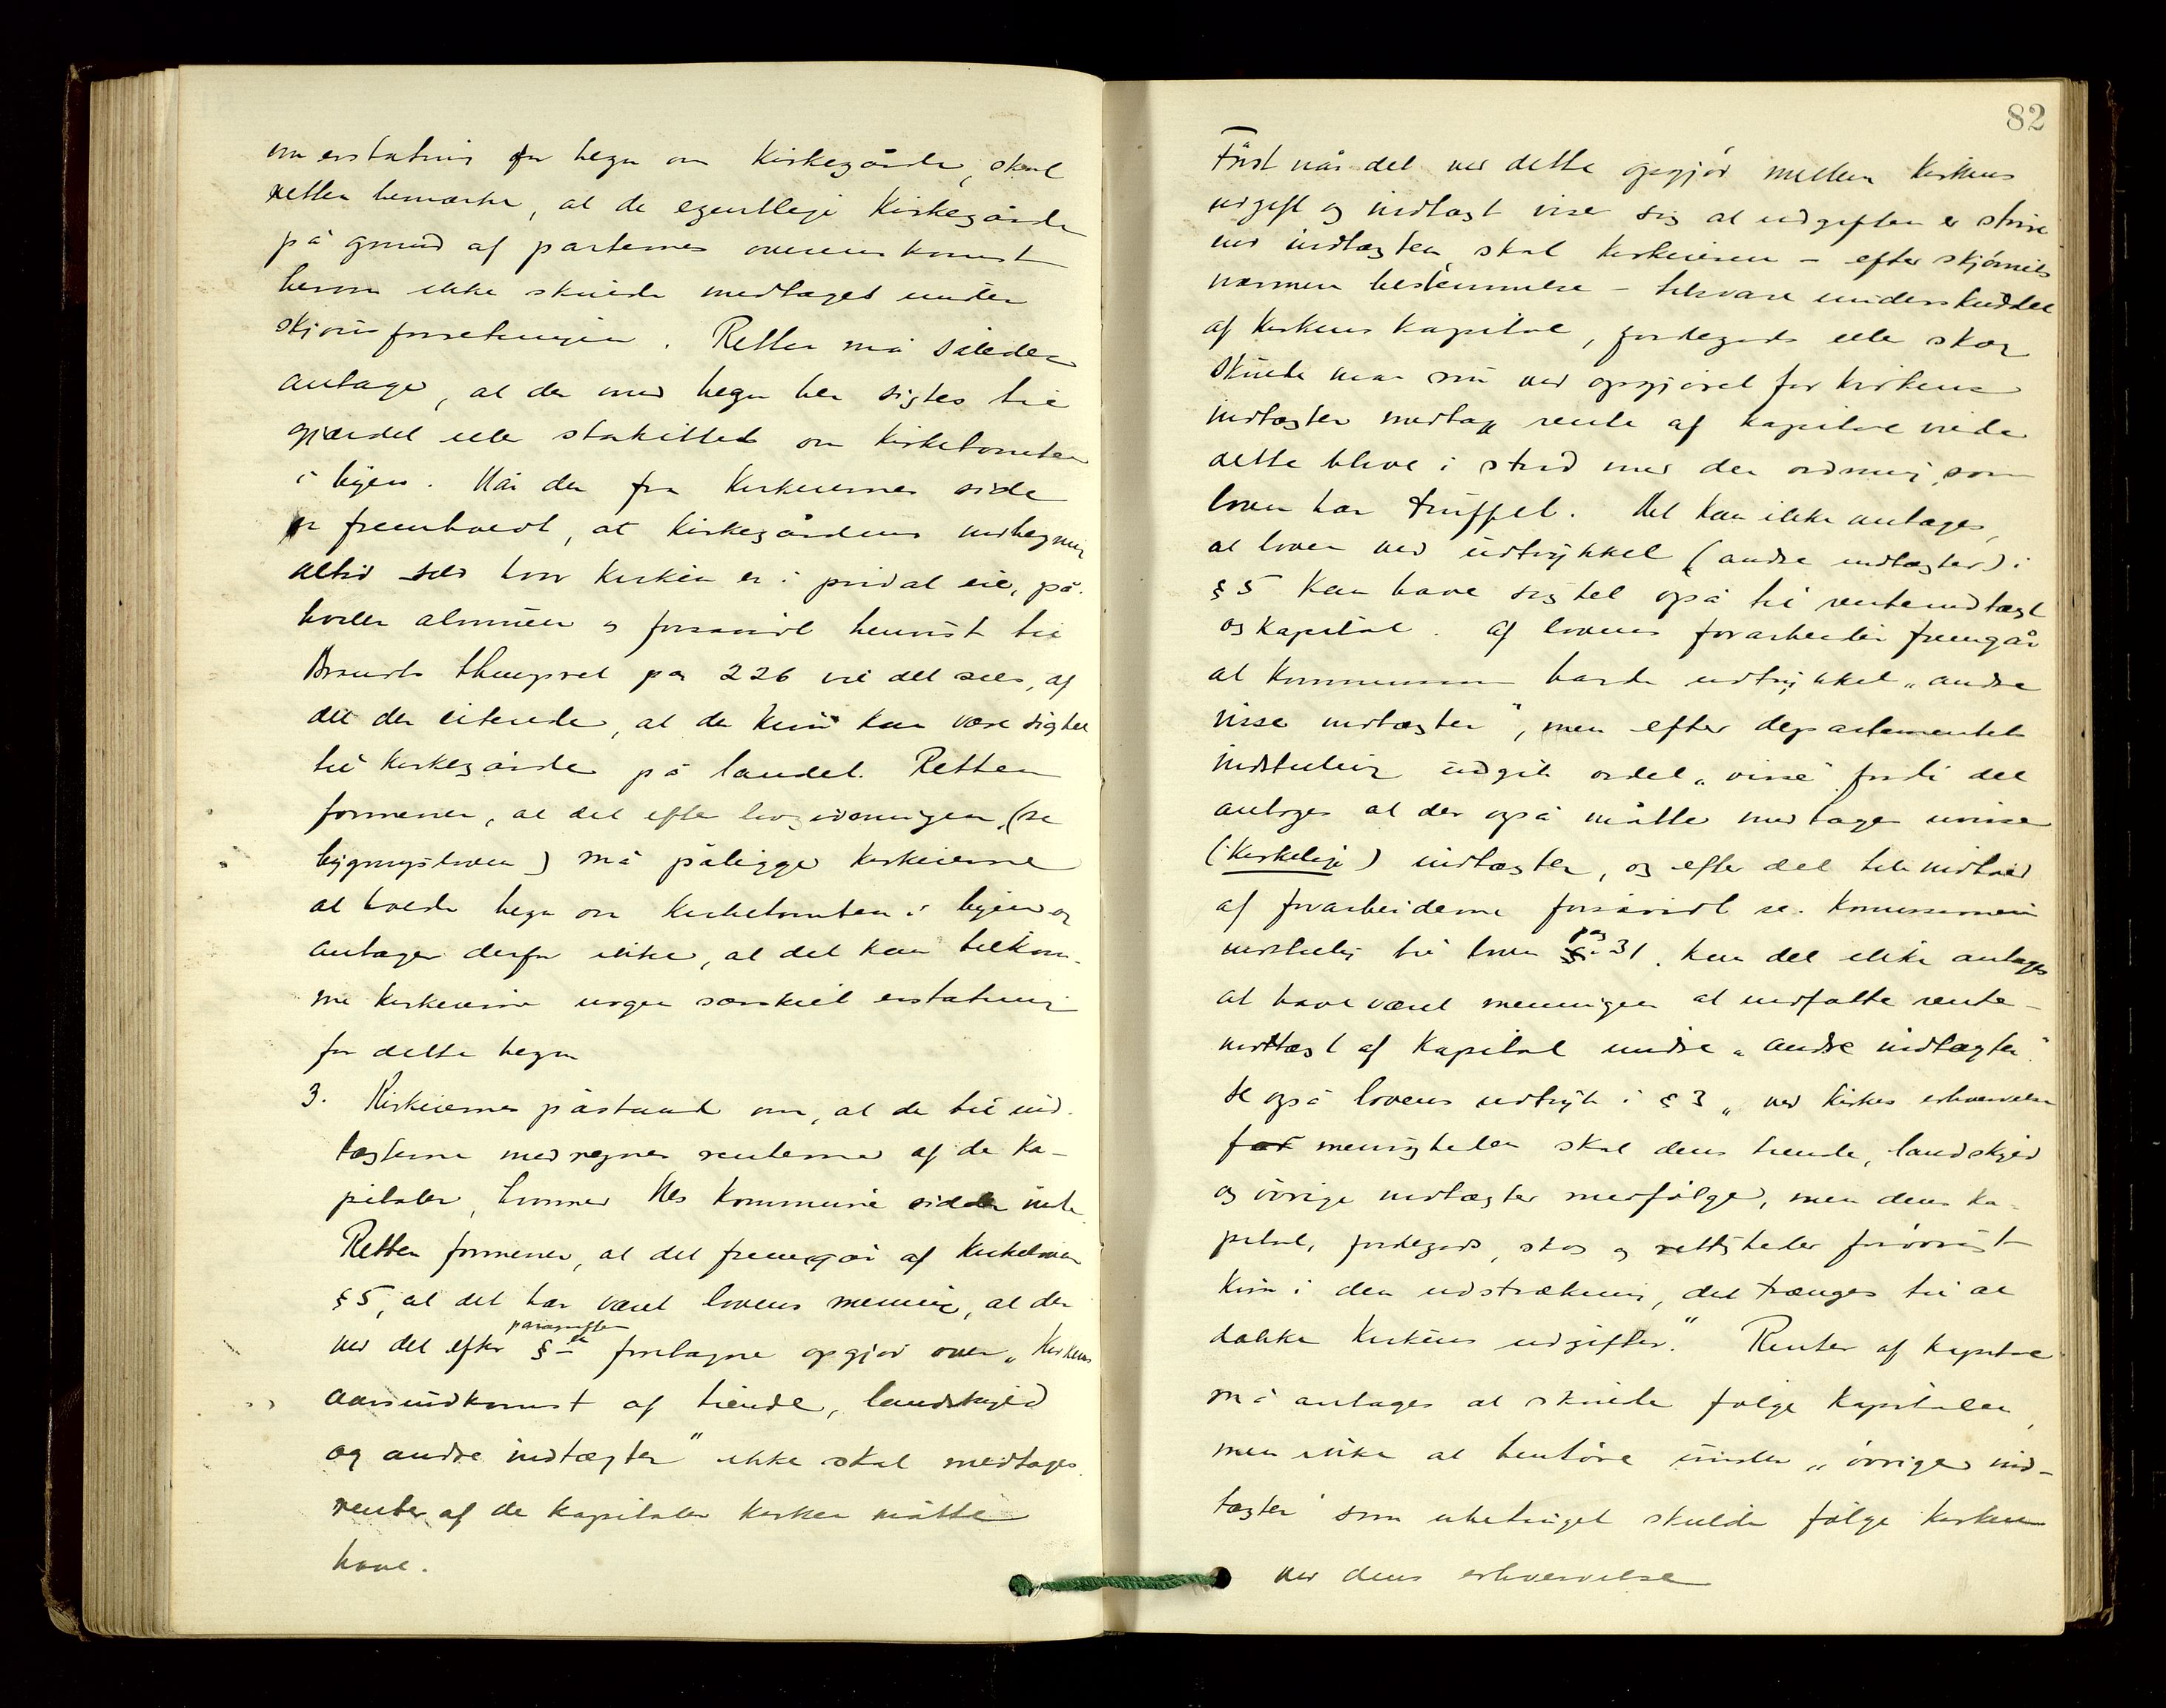 om erstatning for hegn om kirkegårde, skal
retten bemærke, at de egentlige kirkegårde
på grund af parternes overenskomst
herom ikke skulde medtages under
skjønsforretningen. Retten må således
antage, at der med hegn her sigtes til
gjærdet eller stakittet om kirketomten
i byen. Når der fra kirkeiernes side
er fremholdt, at kirkegårdens indhegning
altid selv hvor kirken er i privat eie, på-
hviler almuen og forsåvidt henvist til
Brandts thingsret pag 226 vil det sees, af
det der citerede, at der kun kan være sigtet
til kirkegårde på landet. Retten
formener, at det efter lovgivningen (se
bygningsloven) må påligge kirkeierne
at holde hegn om kirketomten i byen og
antager derfor ikke, at det kan tilkom-
me kirkeierne nogen særskilt erstatning
for dette hegn
3. Kirkeiernes påstand om, at der til ind-
tægterne medregnes renterne af de ka-
pitaler, hvormed Nes kommune sidder inde.
Retten formener, at det fremgår af kirkeloven
§ 5, at det har været lovens mening, at der
paragrafen
ved det efter § foretagne opgjør over „Kirkens
aarsindkomst af tiende, landskyld
og andre indtægter" ikke skal medtages
renter af de kapitaler kirken måtte
have.
82
Først når det ved dette opgjør mellem kirkens
udgift og indtægt viser sig at udgiften er større
end indtægten, skal kirkeieren – efter skjønnets
nærmere bestemmelse – tilsvare underskuddet
af kirkens kapital, jordegods eller skog
Skulde man nu ved opgjøret for kirkens
indtægter medtage rente af kapital vilde
dette blive i strid med den ordning, som
loven har truffet. Det kan ikke antages,
at loven ved udtrykket (andre indtægter) i
§ 5 kan have sigtet også til renteindtægt
og kapital. Af lovens forarbeider fremgår
at kommissionen havde udtrykket „andre
visse indtægter", men efter departementets
indstilling udgik ordet „visse" fordi det
antoges at der også måtte medtages uvisse
(kirkelige) indtægter, og efter det hele indhold
af forarbeiderne forsåvidt se. kommissionens
indstilling til loven pag 31. kan det ikke antages
at have været meningen at indfatte rente-
indtægt af kapital under „andre indtægter".
Se også lovens udtryk i § 3 „ved kirkes erhvervelse
for menigheden skal dens tiende, landskyld
og øvrige indtægter medfølge, men dens ka-
pital, jordegods, skog og rettigheder forøvrigt
kun i den udstrækning, det trænges til at
dække kirkens udgifter." Renter af kapital
må antages at skulde følge kapitalen,
men ikke at henhøre under „øvrige ind-
tægter" som ubetinget skulde følge kirken
ved dens erhvervelse